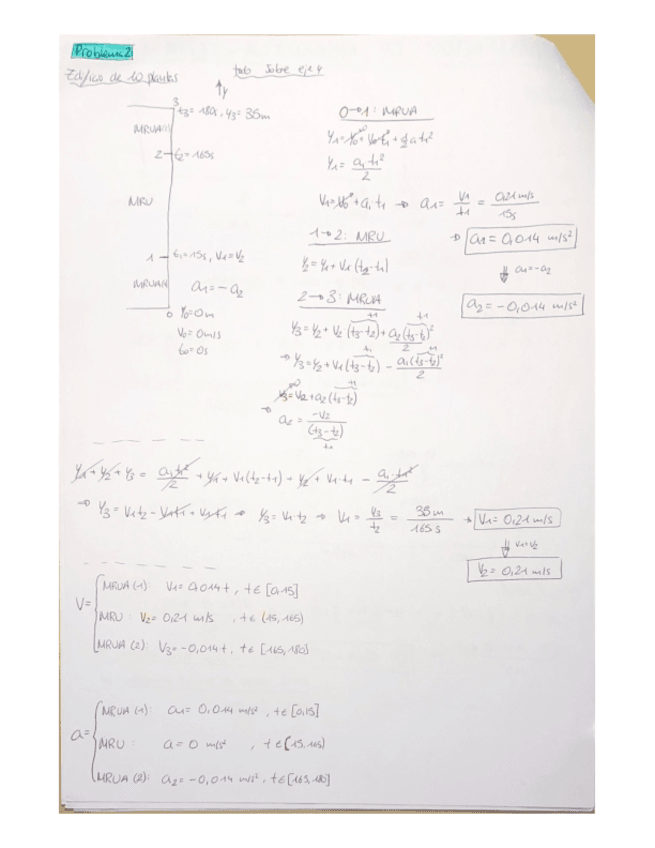 Problema 2
Edificio de 10 plantas
todo sobre eje y
↑y
3
t3 = 180s, y3 = 35m
MRUA(2)
2 t2 = 165s
MRU
1 t1 = 15s, V1 = V2
MRUA(1)
a1 = - a2
0 y0 = 0m
V0 = 0m/s
t0 = 0s
0→1: MRUA
y1 = y0 + V0·t1 + ½ a t1²
y1 = a1·t1² / 2
V1 = V0 + a1 t1 → a1 = V1 / t1 = 0,21 m/s / 15s
→ a1 = 0,014 m/s²
⇓ a1 = -a2
a2 = -0,014 m/s²
1→2: MRU
y2 = y1 + V1 (t2-t1)
2→3: MRUA
y3 = y2 + V2 (t3-t2) + a2 (t3-t2)² / 2
→ y3 = y2 + V1 (t3-t2) - a1 (t3-t2)² / 2
V3 = V2 + a2 (t3-t2)
→ a2 = -V2 / (t3-t2)
t1
y1 + y2 + y3 = a1·t1² / 2 + y1 + V1 (t2-t1) + y2 + V1·t1 - a1·t1² / 2
→ y3 = V1 t2 - V1 t1 + V1 t1 → y3 = V1 t2 → V1 = y3 / t2 = 35m / 165s → V1 = 0,21 m/s
⇓ V1=V2
V2 = 0,21 m/s
V = { MRUA (1): V1 = 0,014 t , t ∈ [0,15]
MRU : V2 = 0,21 m/s , t ∈ (15,165)
MRUA (2): V3 = -0,014 t , t ∈ [165,180]
a = { MRUA (1): a1 = 0,014 m/s² , t ∈ [0,15]
MRU : a = 0 m/s² , t ∈ (15,165)
MRUA (2): a2 = -0,014 m/s² , t ∈ [165,180]